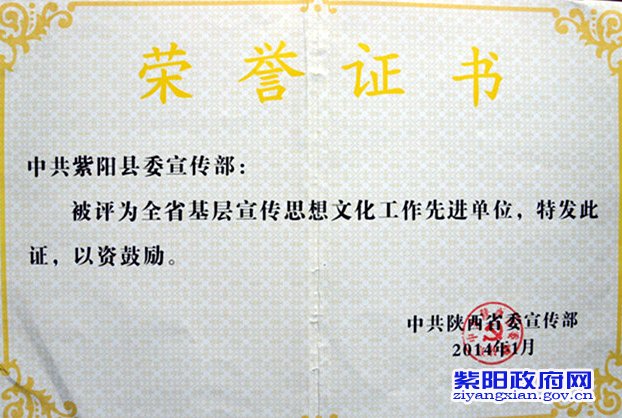 荣誉证书
中共紫阳县委宣传部：
被评为全省基层宣传思想文化工作先进单位，特发此
证，以资鼓励。
中共陕西省委宣传部
2014年1月
紫阳政府网
ziyangxian.gov.cn